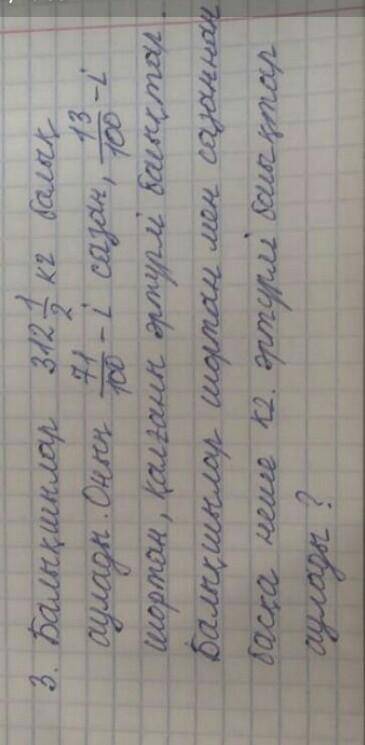 3. Балықшылар 312 1/2 кг балық
аулады. Оның 71/100 - і сазан, 13/100 - і
шортан, қалғаны әртүрлі балықтар.
Балықшылар шортан мен сазаннан
басқа неше кг. әртүрлі балықтар
аулады?